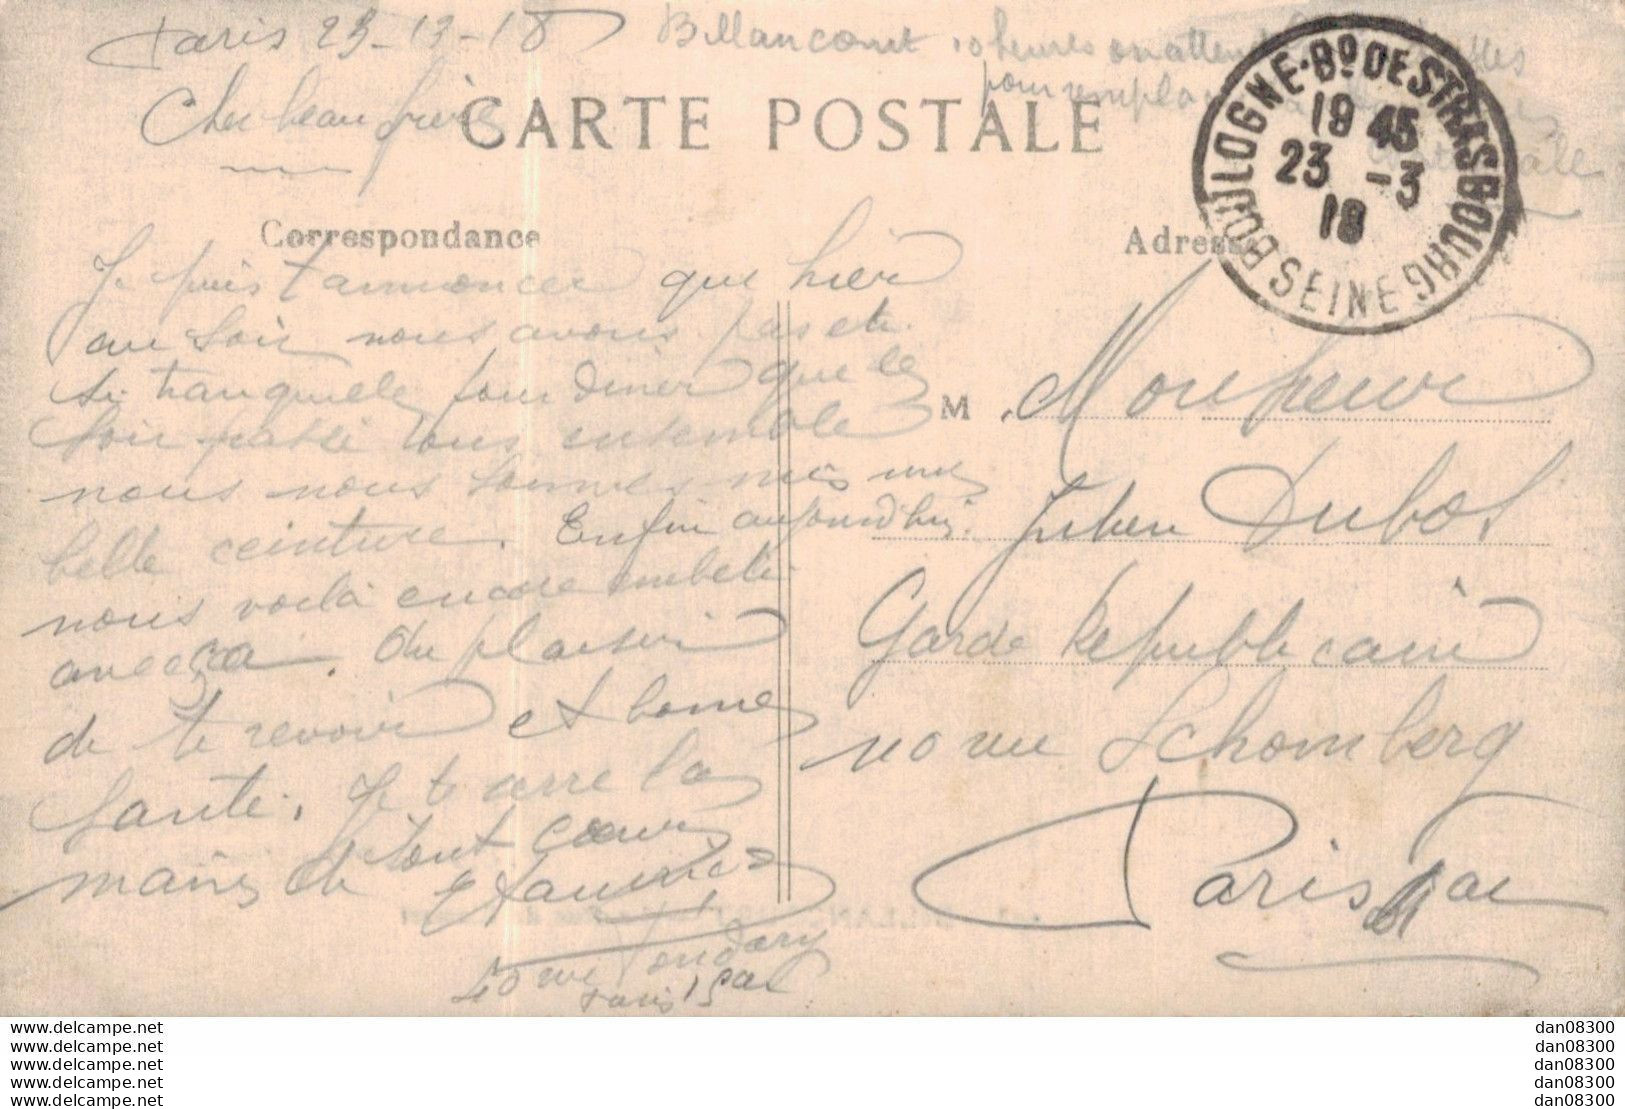 Paris 23-12-18
Billancourt 10 heures on attend
pour
Cher beau frère
CARTE POSTALE
BOULOGNE-BD DE STRASBOURG
19 45
23 -3
18
SEINE
Correspondance
Adresse
Je puis t annoncer que hier
au soir nous avons pas été
si tranquille pour diner que le
soir passé tous ensemble
nous nous sommes mis une
belle ceinture. Enfin aujourdhui
nous voilà encore embêté
avec ça. Au plaisir
de te revoir et bonne
santé. Je te serre la
main de tout cœur
40 rue Fondary
Paris 15
M Monsieur
Julien Dubos
Garde Républicain
10 rue Schomberg
Paris
www.delcampe.net
www.delcampe.net
www.delcampe.net
www.delcampe.net
www.delcampe.net
dan08300
dan08300
dan08300
dan08300
dan08300